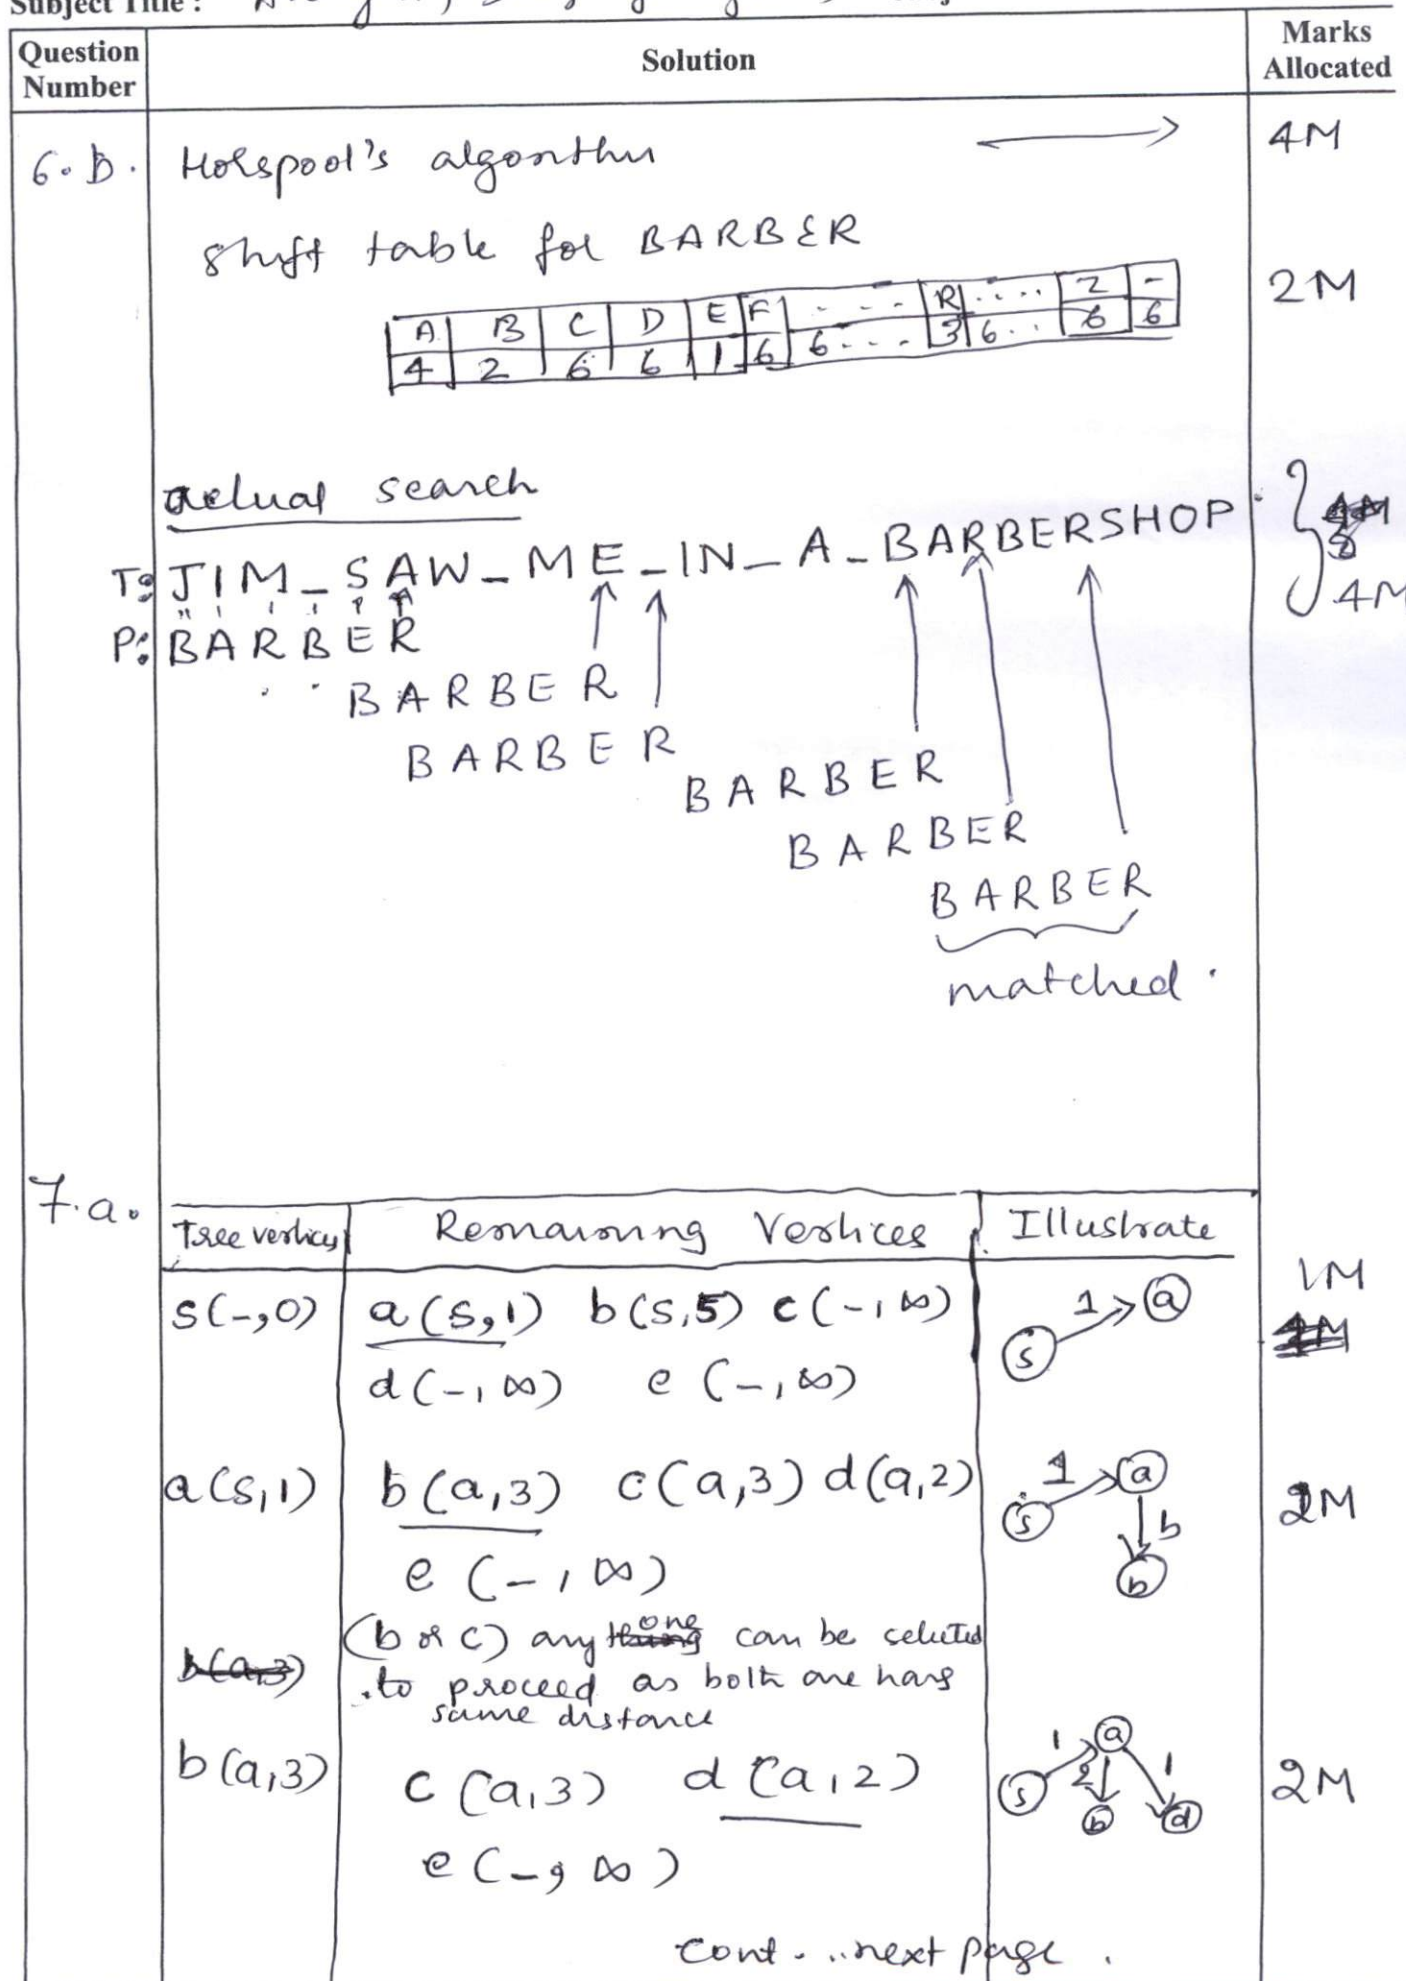 Subject Title :
Question Number
Solution
Marks Allocated
6.b. Horspool's algorithm 4M
shift table for BARBER 2M
A B C D E F - - - - R .... Z -
4 2 6 6 1 6 6 - - - . 3 6 .. 6 6
actual search
T: JIM_SAW_ME_IN_A_BARBERSHOP. 4M
P: BARBER
BARBER
BARBER
BARBER
BARBER
BARBER
matched.
7.a.
Tree vertices Remaining Vertices Illustrate
s(-,0) a(s,1) b(s,5) c(-,∞) 1 a s 1M
d(-,∞) e(-,∞)
a(s,1) b(a,3) c(a,3) d(a,2) 1 a s b b 2M
e(-,∞)
(b or c) any one can be selected
to proceed as both are havg
same distance
b(a,3) c(a,3) d(a,2) 1 a s 2 1 b d 2M
e(-,∞)
cont...next page.